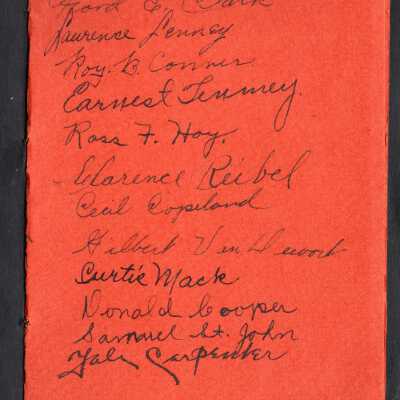 Ford E. Clark
Laurence Tenney
Roy. B. Conner
Earnest Tenney.
Ross F. Hoy.
Clarence Reibel
Cecil Copeland
Gilbert
Curtis Mack
Donald Cooper
Samuel St. John
Yale Carpenter